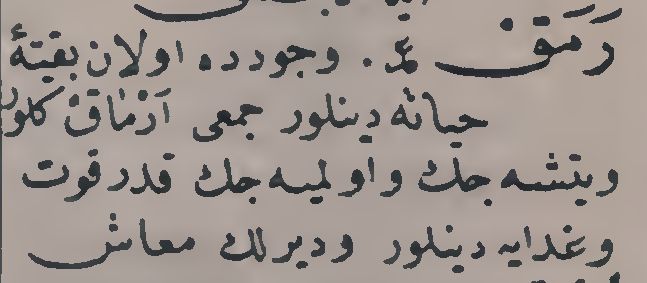 رَمَق ع. وجودده اولان بقيهٔ
حياته دينلور جمعی اَرْمَاق كلور
ويتشه جك و اولميه جك قدر قوت
وغدايه دينلور وديرلك معاش